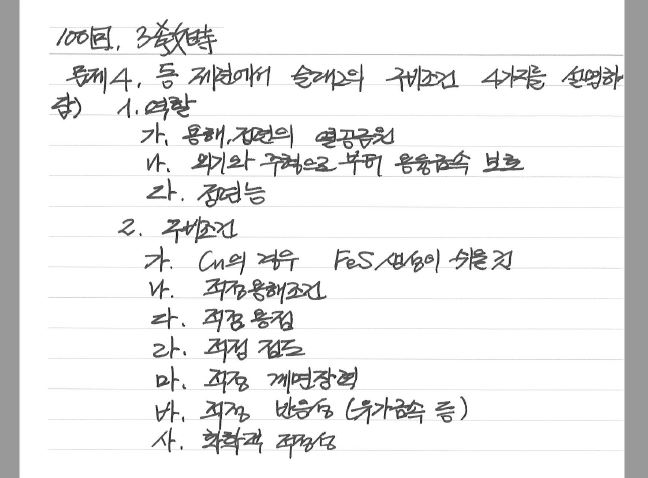 100回, 3敎時
문제4, 동 제련에서 슬래그의 구비조건 4가지를 설명하
답) 1. 역할
가, 용해, 정련의 열공급원
나. 외기와 주혁으로 부터 용융금속 보호
라. 정련능
2. 구비조건
가. Cu의 경우 FeS 생성이 쉬울 것
나. 적정용해조건
다. 적정 용점
라. 적정 점도
마. 적정 계면장력
바. 적정 반응성 (유가금속 등)
사. 화학적